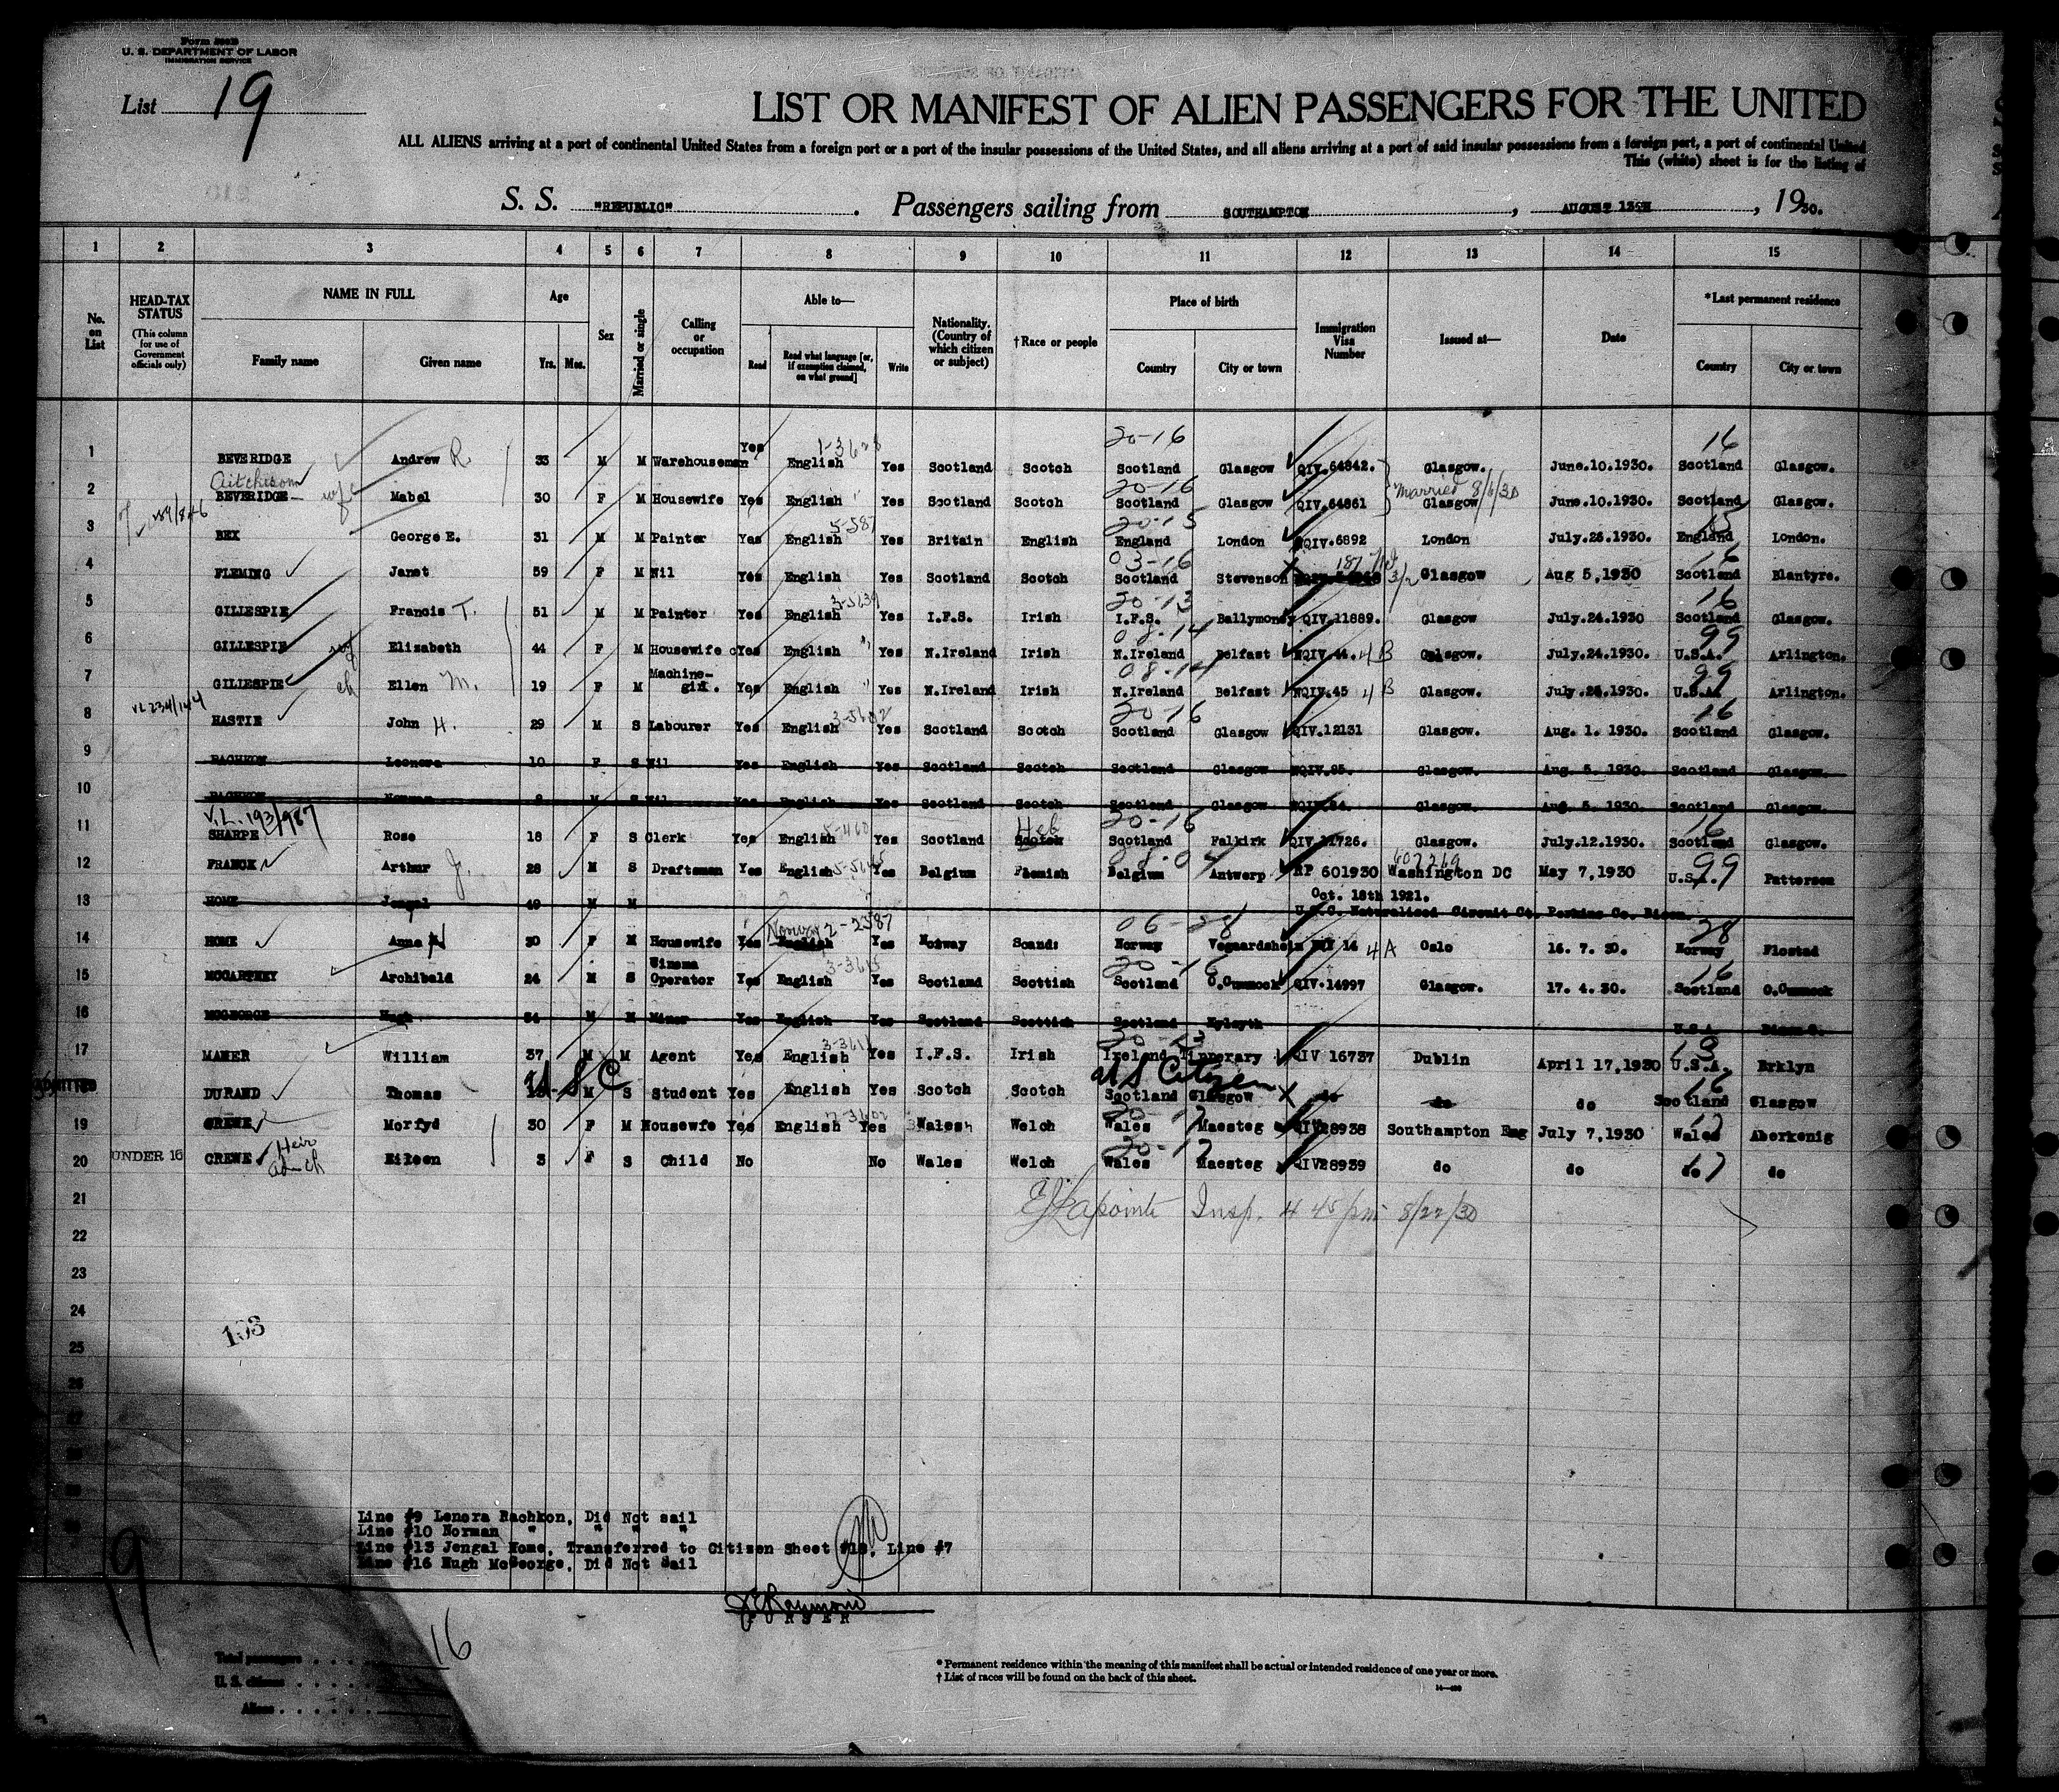 Form 500B
U. S. DEPARTMENT OF LABOR
IMMIGRATION SERVICE
List 19
LIST OR MANIFEST OF ALIEN PASSENGERS FOR THE UNITED
ALL ALIENS arriving at a port of continental United States from a foreign port or a port of the insular possessions of the United States, and all aliens arriving at a port of said insular possessions from a foreign port, a port of continental United
This (white) sheet is for the listing of
S. S. "REPUBLIC". Passengers sailing from SOUTHAMPTON, AUGUST 13TH, 1930.
1 2 3 4 5 6 7 8 9 10 11 12 13 14 15
No. on List
HEAD-TAX STATUS (This column for use of Government officials only)
NAME IN FULL Family name Given name
Age Yrs. Mos.
Sex
Married or single
Calling or occupation
Able to— Read Read what language [or, if exemption claimed, on what ground] Write
Nationality. (Country of which citizen or subject)
†Race or people
Place of birth Country City or town
Immigration Visa Number
Issued at—
Date
*Last permanent residence Country City or town
20-16 16
1 BEVERIDGE Andrew R. 33 M M Warehouseman Yes English Yes Scotland Scotch Scotland Glasgow QIV.64842. Glasgow. June.10.1930. Scotland Glasgow.
Aitchison 20-16 Married 8/6/30
2 BEVERIDGE wfe Mabel 30 F M Housewife Yes English Yes Scotland Scotch Scotland Glasgow QIV.64861 Glasgow June.10.1930. Scotland Glasgow.
20-15 15
3 BEX George E. 31 M M Painter Yes English Yes Britain English England London NQIV.6892 London July.28.1930. England London.
03-16 16
4 FLEMING Janet 59 F M Nil Yes English Yes Scotland Scotch Scotland Stevenson Glasgow Aug 5,1930 Scotland Blantyre.
20-13 16
5 GILLESPIE Francis T. 51 M M Painter Yes English Yes I.F.S. Irish I.F.S. Ballymoney QIV.11889. Glasgow July.24.1930 Scotland Glasgow.
08-14 99
6 GILLESPIE wf Elizabeth 44 F M Housewife Yes English Yes N.Ireland Irish N.Ireland Belfast NQIV.44. 4B Glasgow. July.24.1930. U.S.A. Arlington.
Machine- 08-14 99
7 GILLESPIE ch Ellen M. 19 F M girl. Yes English Yes N.Ireland Irish N.Ireland Belfast NQIV.45 4B Glasgow. July.24.1930. U.S.A. Arlington.
VL 234/144 20-16 16
8 HASTIE John H. 29 M S Labourer Yes English Yes Scotland Scotch Scotland Glasgow QIV.12131 Glasgow. Aug. 1. 1930. Scotland Glasgow.
9 RACHKON Leonora 10 F S Nil Yes English Yes Scotland Scotch Scotland Glasgow NQIV.85. Glasgow. Aug. 5. 1930. Scotland Glasgow.
10 RACHKON Norman M S Nil Yes English Yes Scotland Scotch Scotland Glasgow NQIV.84. Glasgow. Aug. 5. 1930. Scotland Glasgow.
V.L. 193/987 Heb 20-16 16
11 SHARPE Rose 18 F S Clerk Yes English Yes Scotland Scotch Scotland Falkirk QIV.11726. Glasgow. July.12.1930. Scotland Glasgow.
08-04 607269 99
12 FRANCK Arthur J. 28 M S Draftsman Yes English Yes Belgium Flemish Belgium Antwerp RP 601930 Washington DC May 7,1930 U.S.A. Patterson
Oct. 18th 1921.
13 HOME Jengal 49 M M U.S.C. Naturalized Circuit Ct. Perkins Co. Bison
Norway 2-2587 06-28 28
14 HOME Anna 30 F M Housewife Yes English Yes Norway Scand: Norway Vegaardshein 14 4A Oslo 16. 7. 30. Norway Flostad
Cinema 20-16 16
15 MCCARTNEY Archibald 24 M S Operator Yes English Yes Scotland Scottish Scotland O.Cummock QIV.14997 Glasgow. 17. 4. 30. Scotland O.Cummock
16 MCGEORGE Hugh 54 M M Miner Yes English Yes Scotland Scottish Scotland Kylsyth U.S.A. Bison
20-13
17 MAHER William 37 M M Agent Yes English Yes I.F.S. Irish Ireland Tipperary QIV 16737 Dublin April 17,1930 U.S.A. Brklyn
ADMITTED U S C US Citizen 16
DURAND Thomas M S Student Yes English Yes Scotch Scotch Scotland Glasgow do do do Scotland Glasgow
20-17 17
19 CREWE Morfyd 30 F M Housewfe Yes English Yes Wales Welch Wales Maesteg QIV28938 Southampton Eng July 7,1930 Wales Aberkenig
20-17
20 UNDER 16 CREWE Eileen 3 F S Child No No Wales Welch Wales Maesteg QIV28939 do do do 17 do
21 EJLapointe Insp. 4 45 pm 8/22/30
22
23
24
103
25
26
27
Line #9 Lenora Rachkon, Did Not sail
Line #10 Norman " " " "
Line #13 Jengal Home, Transferred to Citizen Sheet #18, Line #7
Line #16 Hugh McGeorge, Did Not Sail
19
Raymond
PURSER
Total passengers 16
U. S. citizens
Aliens
* Permanent residence within the meaning of this manifest shall be actual or intended residence of one year or more.
† List of races will be found on the back of this sheet.